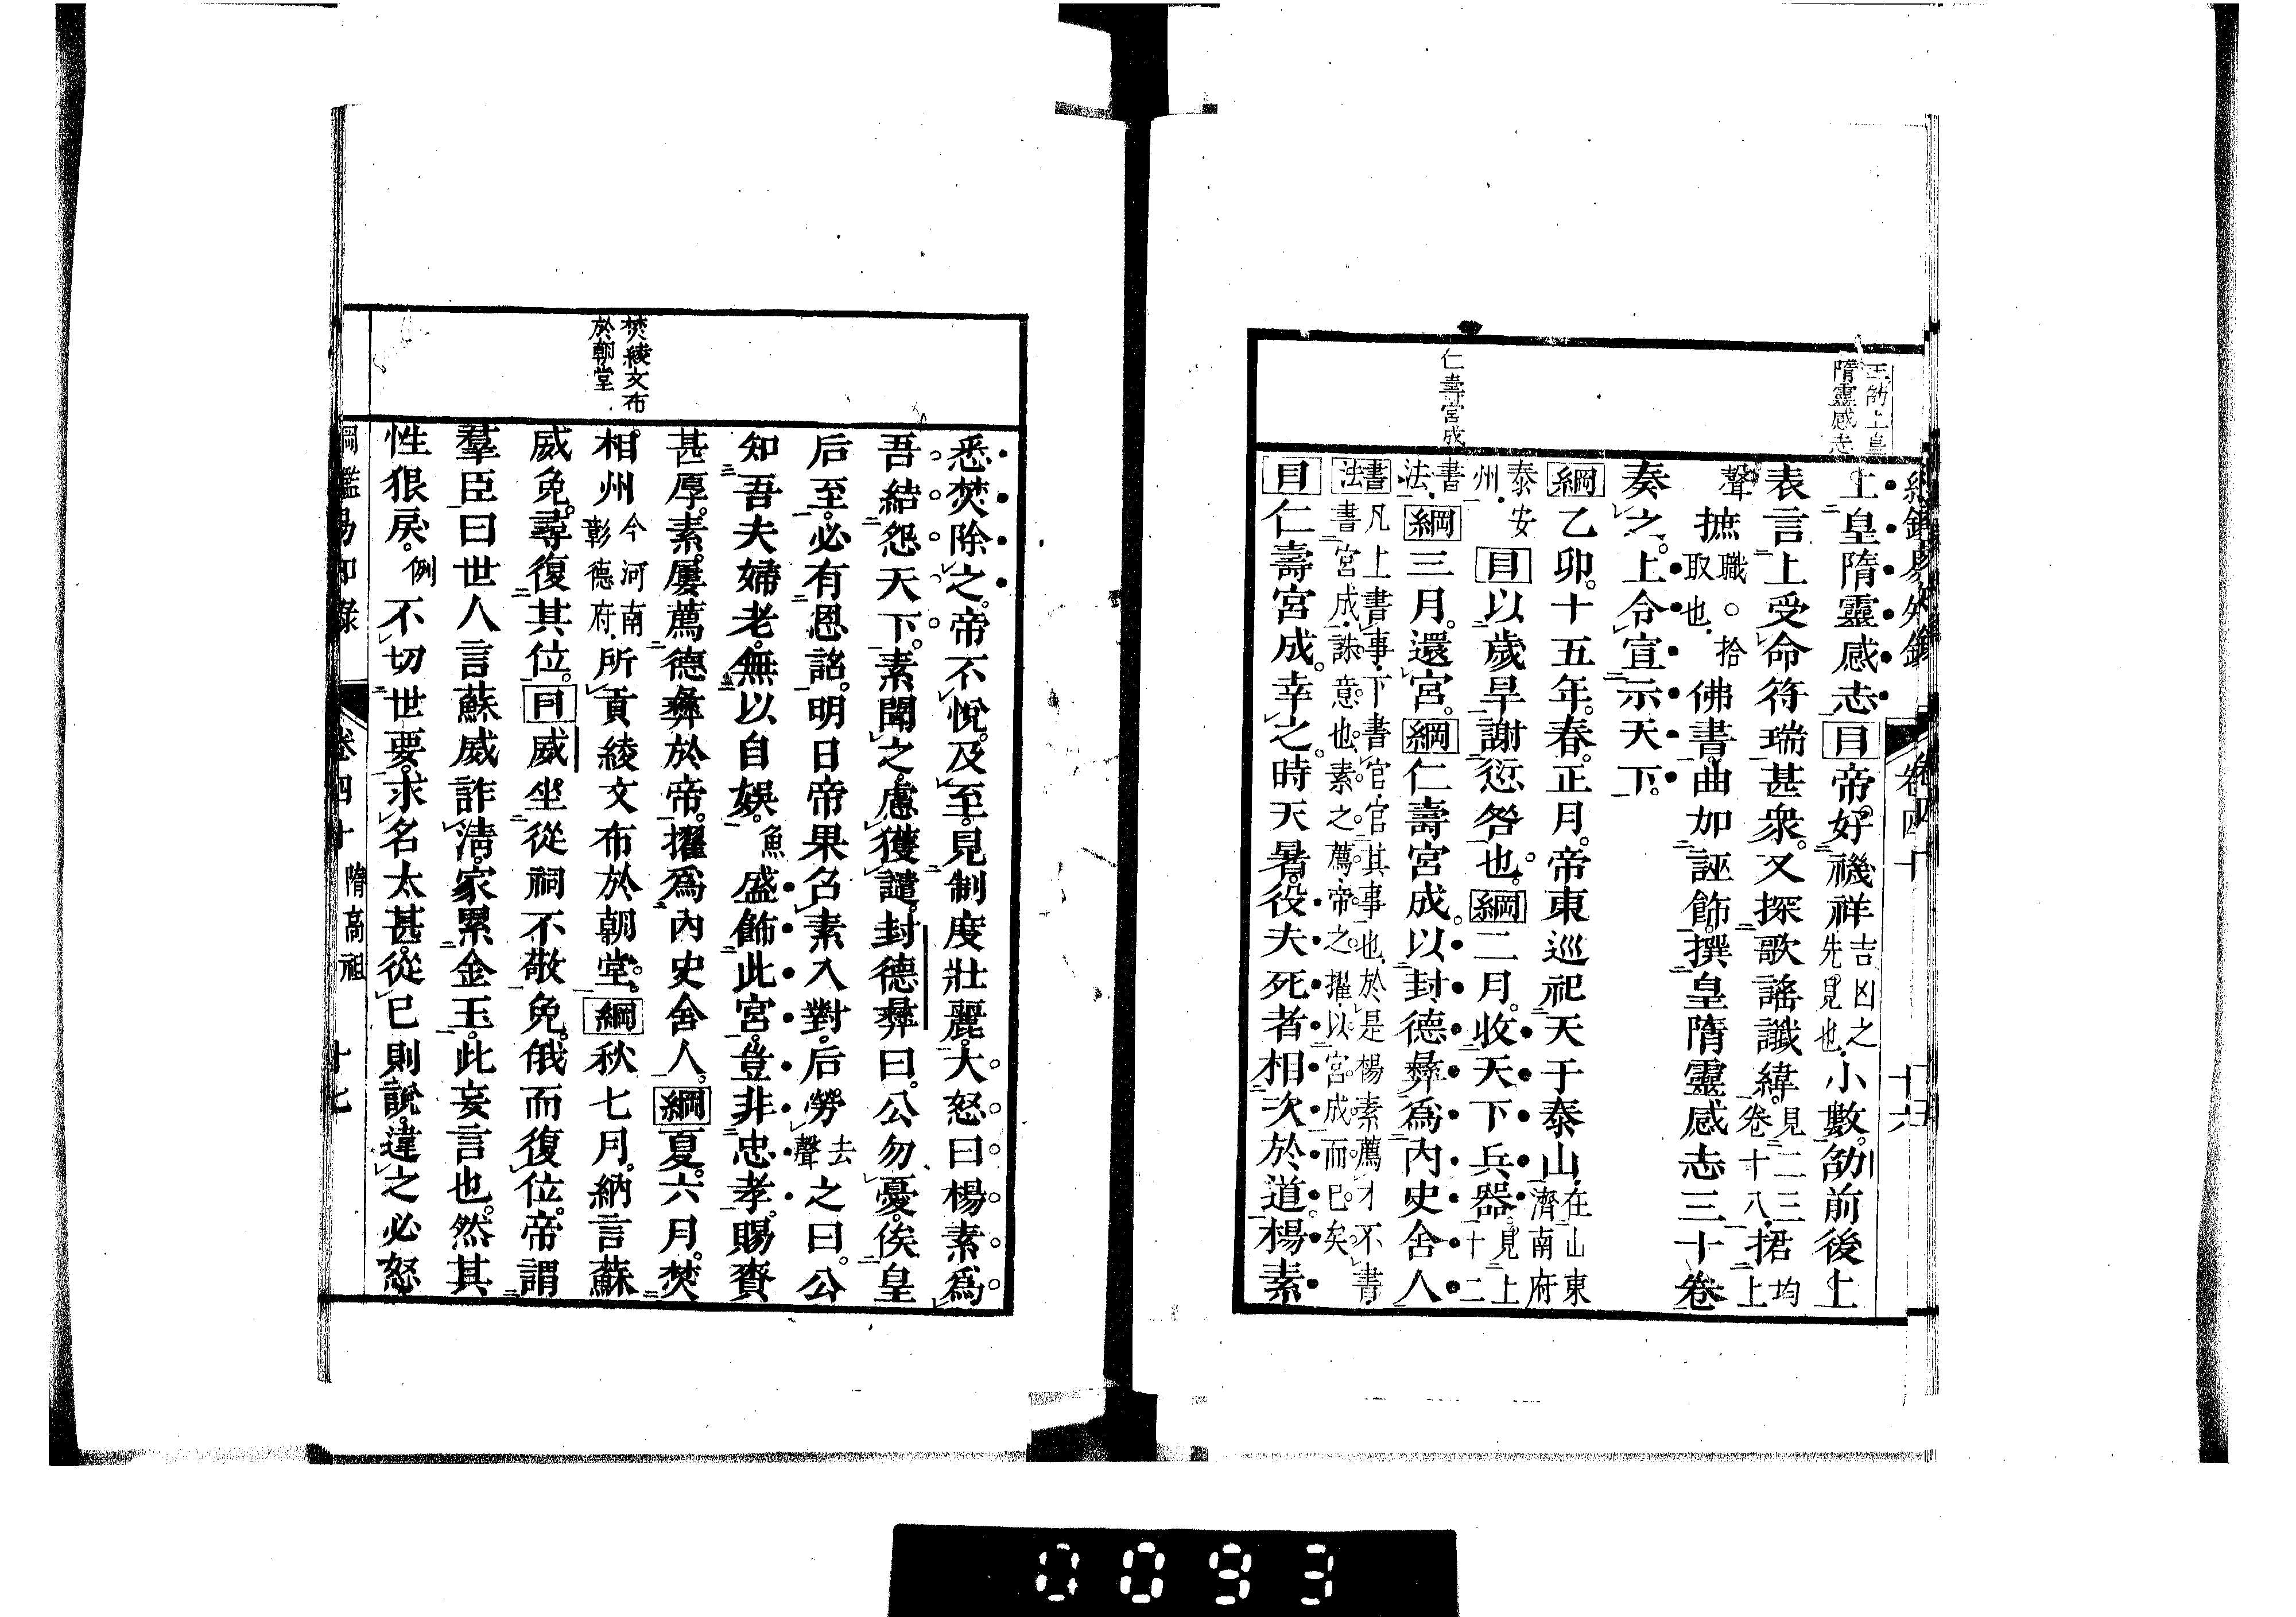 王劭上皇
隋靈感志
上皇隋靈感志目帝好禨祥吉凶之先見也小數劭前後上
表言上受命符瑞甚衆又探歌謠讖緯見二三卷十八捃均上
聲摭職○拾取也佛書曲加誣飾撰皇隋靈感志三十卷
奏之上令宣示天下
綱乙卯十五年春正月帝東巡祀天于泰山在山東濟南府
泰安州目以歲旱謝愆咎也綱二月收天下兵器見上十二
仁壽宮成
書法綱三月還宮綱仁壽宮成以封德彝爲內史舍人
書法凡上書事下書官官其事也於是楊素薦才不書
書宮成誅意也素之薦帝之擢以宮成而已矣
目仁壽宮成幸之時天暑役夫死者相次於道楊素
卷四十
十六
悉焚除之帝不悅及至見制度壯麗大怒曰楊素爲
吾結怨天下素聞之慮獲譴封德彝曰公勿憂俟皇
后至必有恩詔明日帝果召素入對后勞去聲之曰公
知吾夫婦老無以自娛魚盛飾此宮豈非忠孝賜賚
甚厚素屢薦德彝於帝擢爲內史舍人綱夏六月焚
焚綾文布
於朝堂
相州今河南彰德府所貢綾文布於朝堂綱秋七月納言蘇
威免尋復其位目威坐從祠不敬免俄而復位帝謂
羣臣曰世人言蘇威詐清家累金玉此妄言也然其
性狠戾例不切世要求名太甚從已則說違之必怒
綱鑑易知錄 卷四十 隋高祖 十七
0093